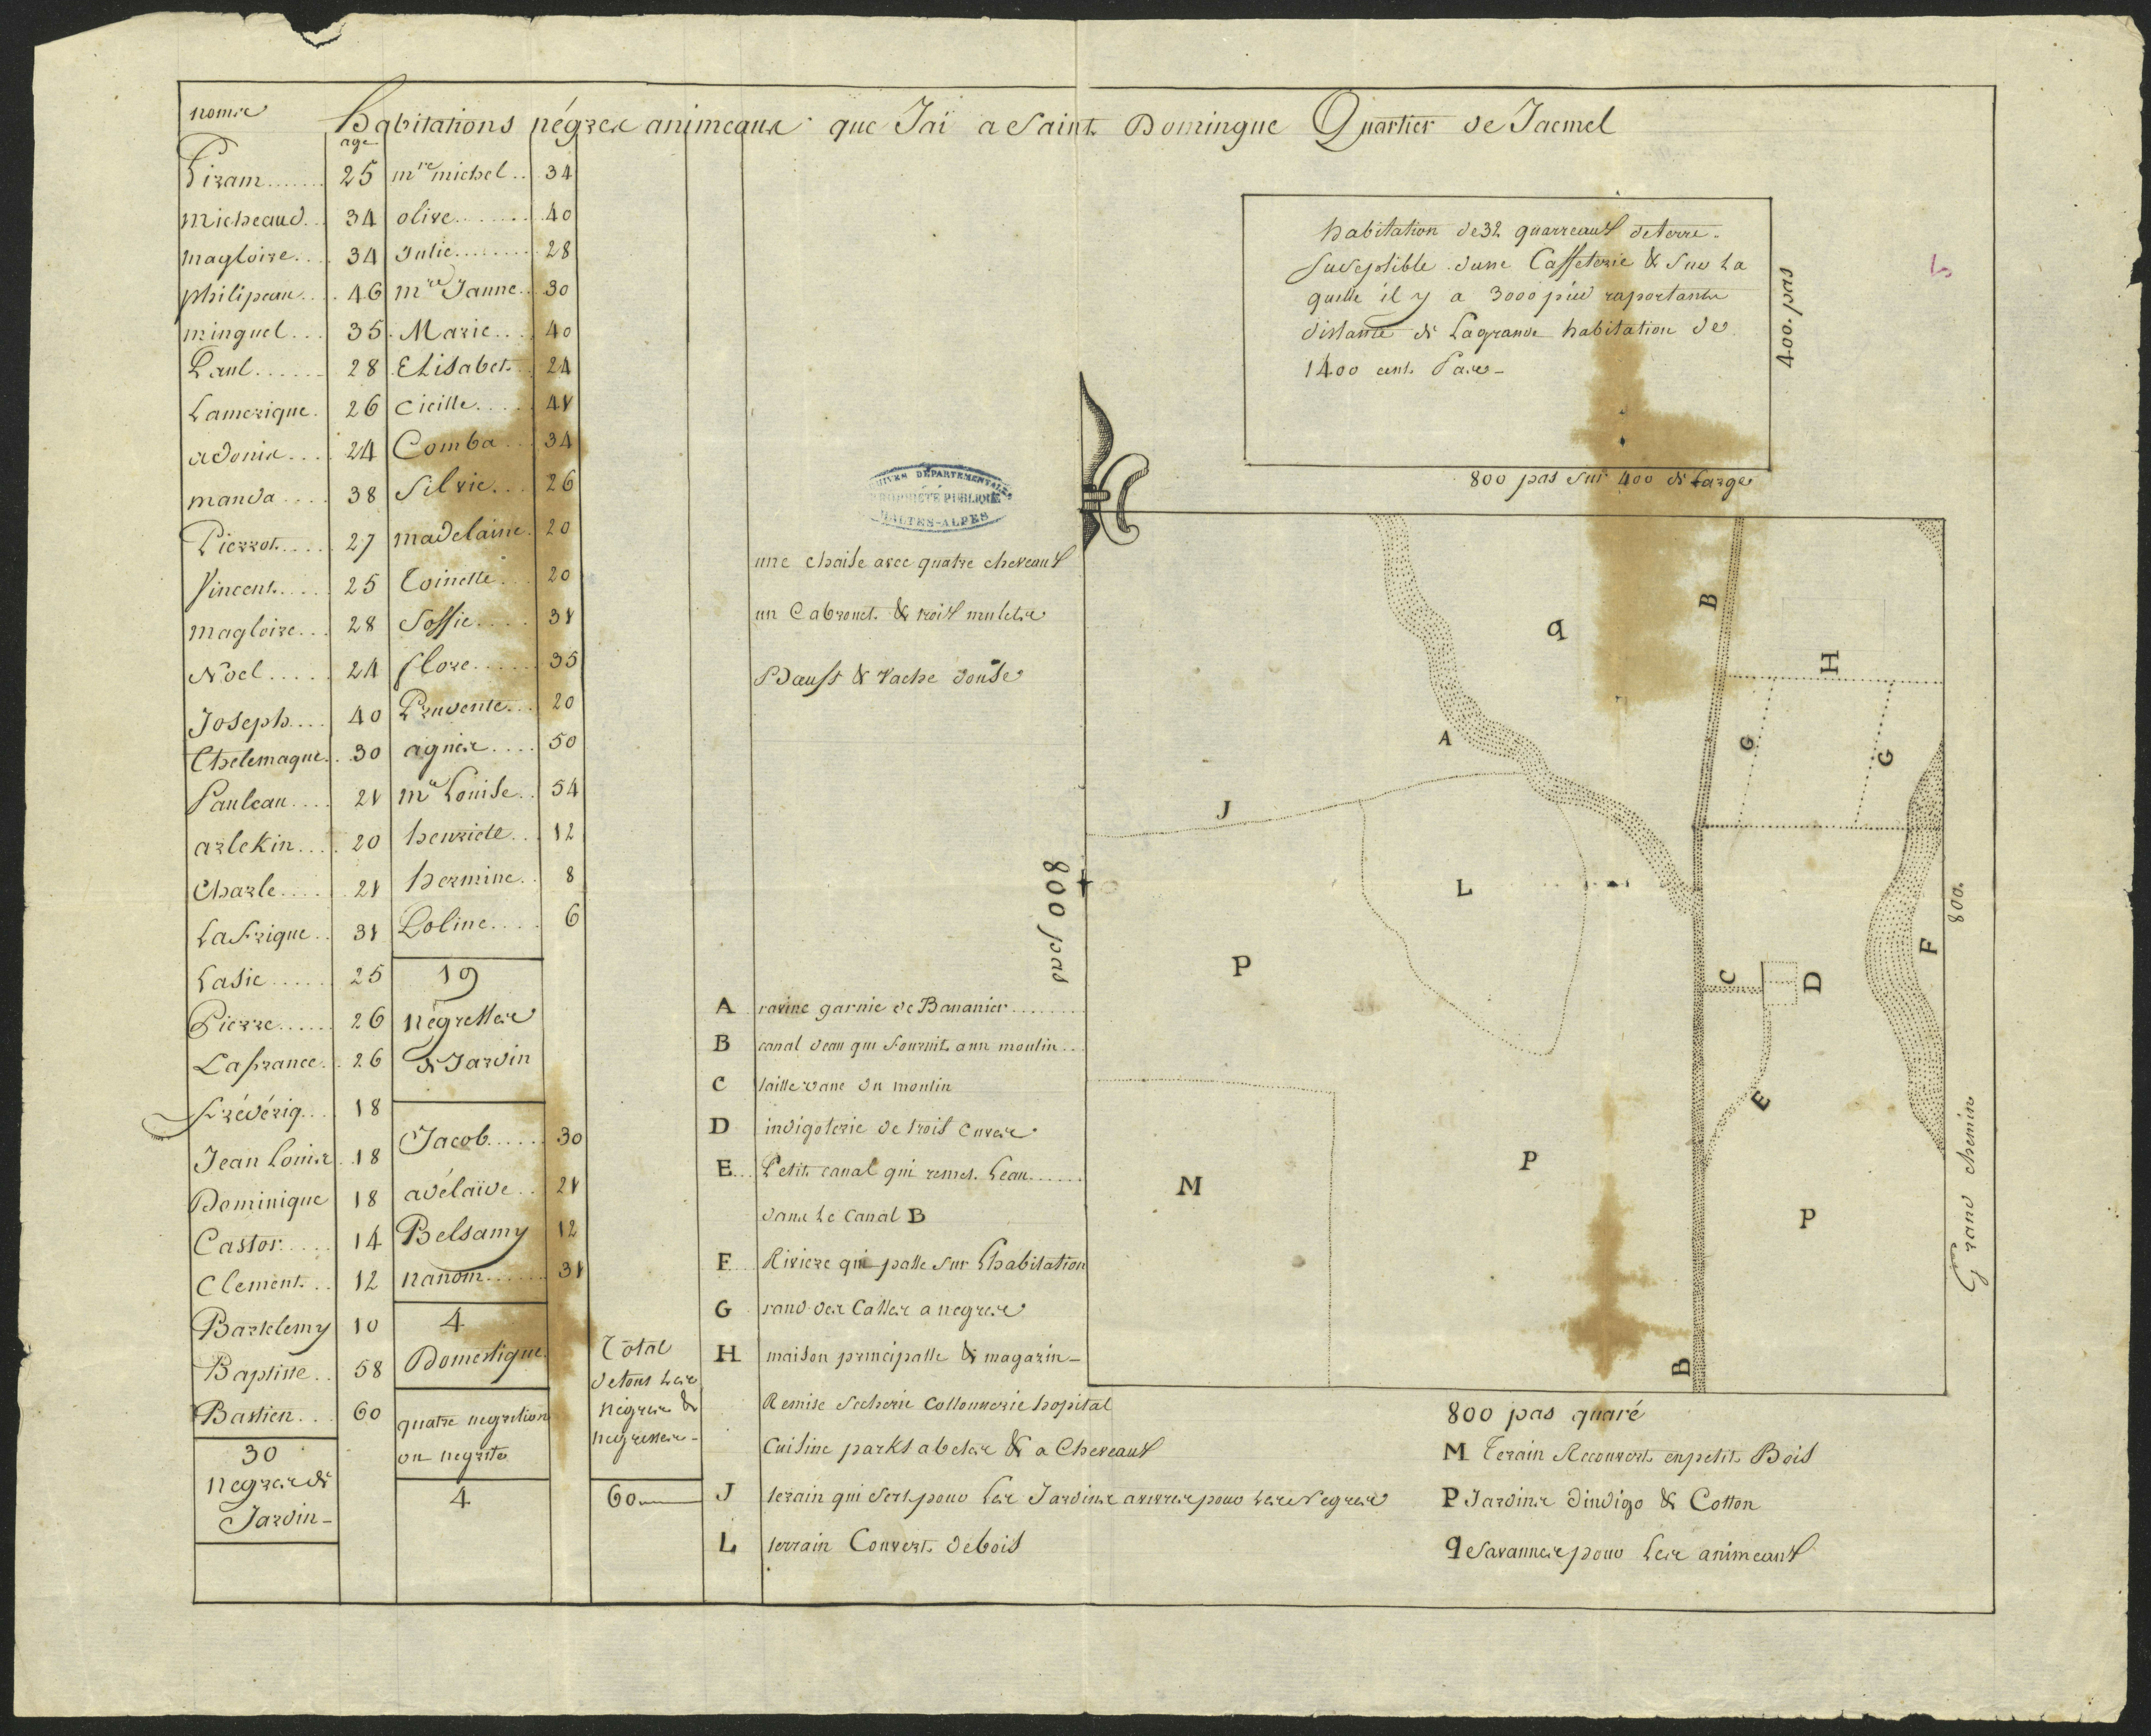 noms
habitations négres animeaux que Jai a Saint Domingue Quartier de Jacmel
age
Piram....... 25
micheaud... 34
magloire.... 34
philipeau.... 46
minguel... 35
Paul...... 28
Lamerique. 26
adonis.... 24
manda.... 38
Pierrot..... 27
Vincent..... 25
magloire... 28
Noel..... 24
Joseph.... 40
Thelemaque.. 30
Pauleau.... 21
arlekin.... 20
Charle..... 21
Lafrique.. 31
Lasie...... 25
Pierre...... 26
Lafrance.. 26
Frédériq... 18
Jean Louis.. 18
Dominique 18
Castor..... 14
Clement... 12
Bartelemy 10
Baptiste.. 58
Bastien... 60
30
negres de
Jardin
mre michel.. 34
olive....... 40
Julie........ 28
mie Janne.. 30
Marie.... 40
Elisabet.. 24
Cicille..... 41
Comba... 34
Silvie... 26
madelaine. 20
Toinette... 20
Soffie..... 31
flore...... 35
Prudente... 20
agnés.... 50
mie Louise.. 54
henriete... 12
hermine.. 8
Loline.... 6
19
négresses
de Jardin
Jacob...... 30
adélaïde.. 21
Belsamy 12
nanom...... 31
4
Domestique
quatre negrition
ou negrite
4
Total
de tous les
négres &
negresses
60
ARCHIVES DÉPARTEMENTALES
PROPRIÉTÉ PUBLIQUE
HAUTES-ALPES
une chaise avec quatre cheveaux
un Cabrouet & trois mulets
Baufs & vache douse
A ravine garnie de Bananier........
B canal deau qui fournit aun moulin..
C taille vane du moulin
D indigoterie de trois Cuves
E... Petit canal qui remet Leau......
dans Le Canal B
F... Riviere qui passe sur Lhabitation
G rand des Casses a negres
H maison principalle & magazin
Remise Secherie Cottonnerie hopital
Cuisine parks abetes & a Cheveaux
J terain qui sert pour Les Jardins avivres pour Les Negres
L terrain Couvert debois
habitation de 32 quarreaux deterre
suseptible dune Caffeterie & sur La
quelle il y a 3000 pied raportants
distante de Lagrande habitation de
1400 cent Pas
400. pas
800 pas sur 400 de Large
800 pas
q
A
B
H
G
G
J
L
P
C
D
F
E
M
P
P
B
800.
Grand chemin
800 pas quaré
M Terain Recouvert enpetit Bois
P Jardins dindigo & Cotton
q Savannes pour Les animeaux